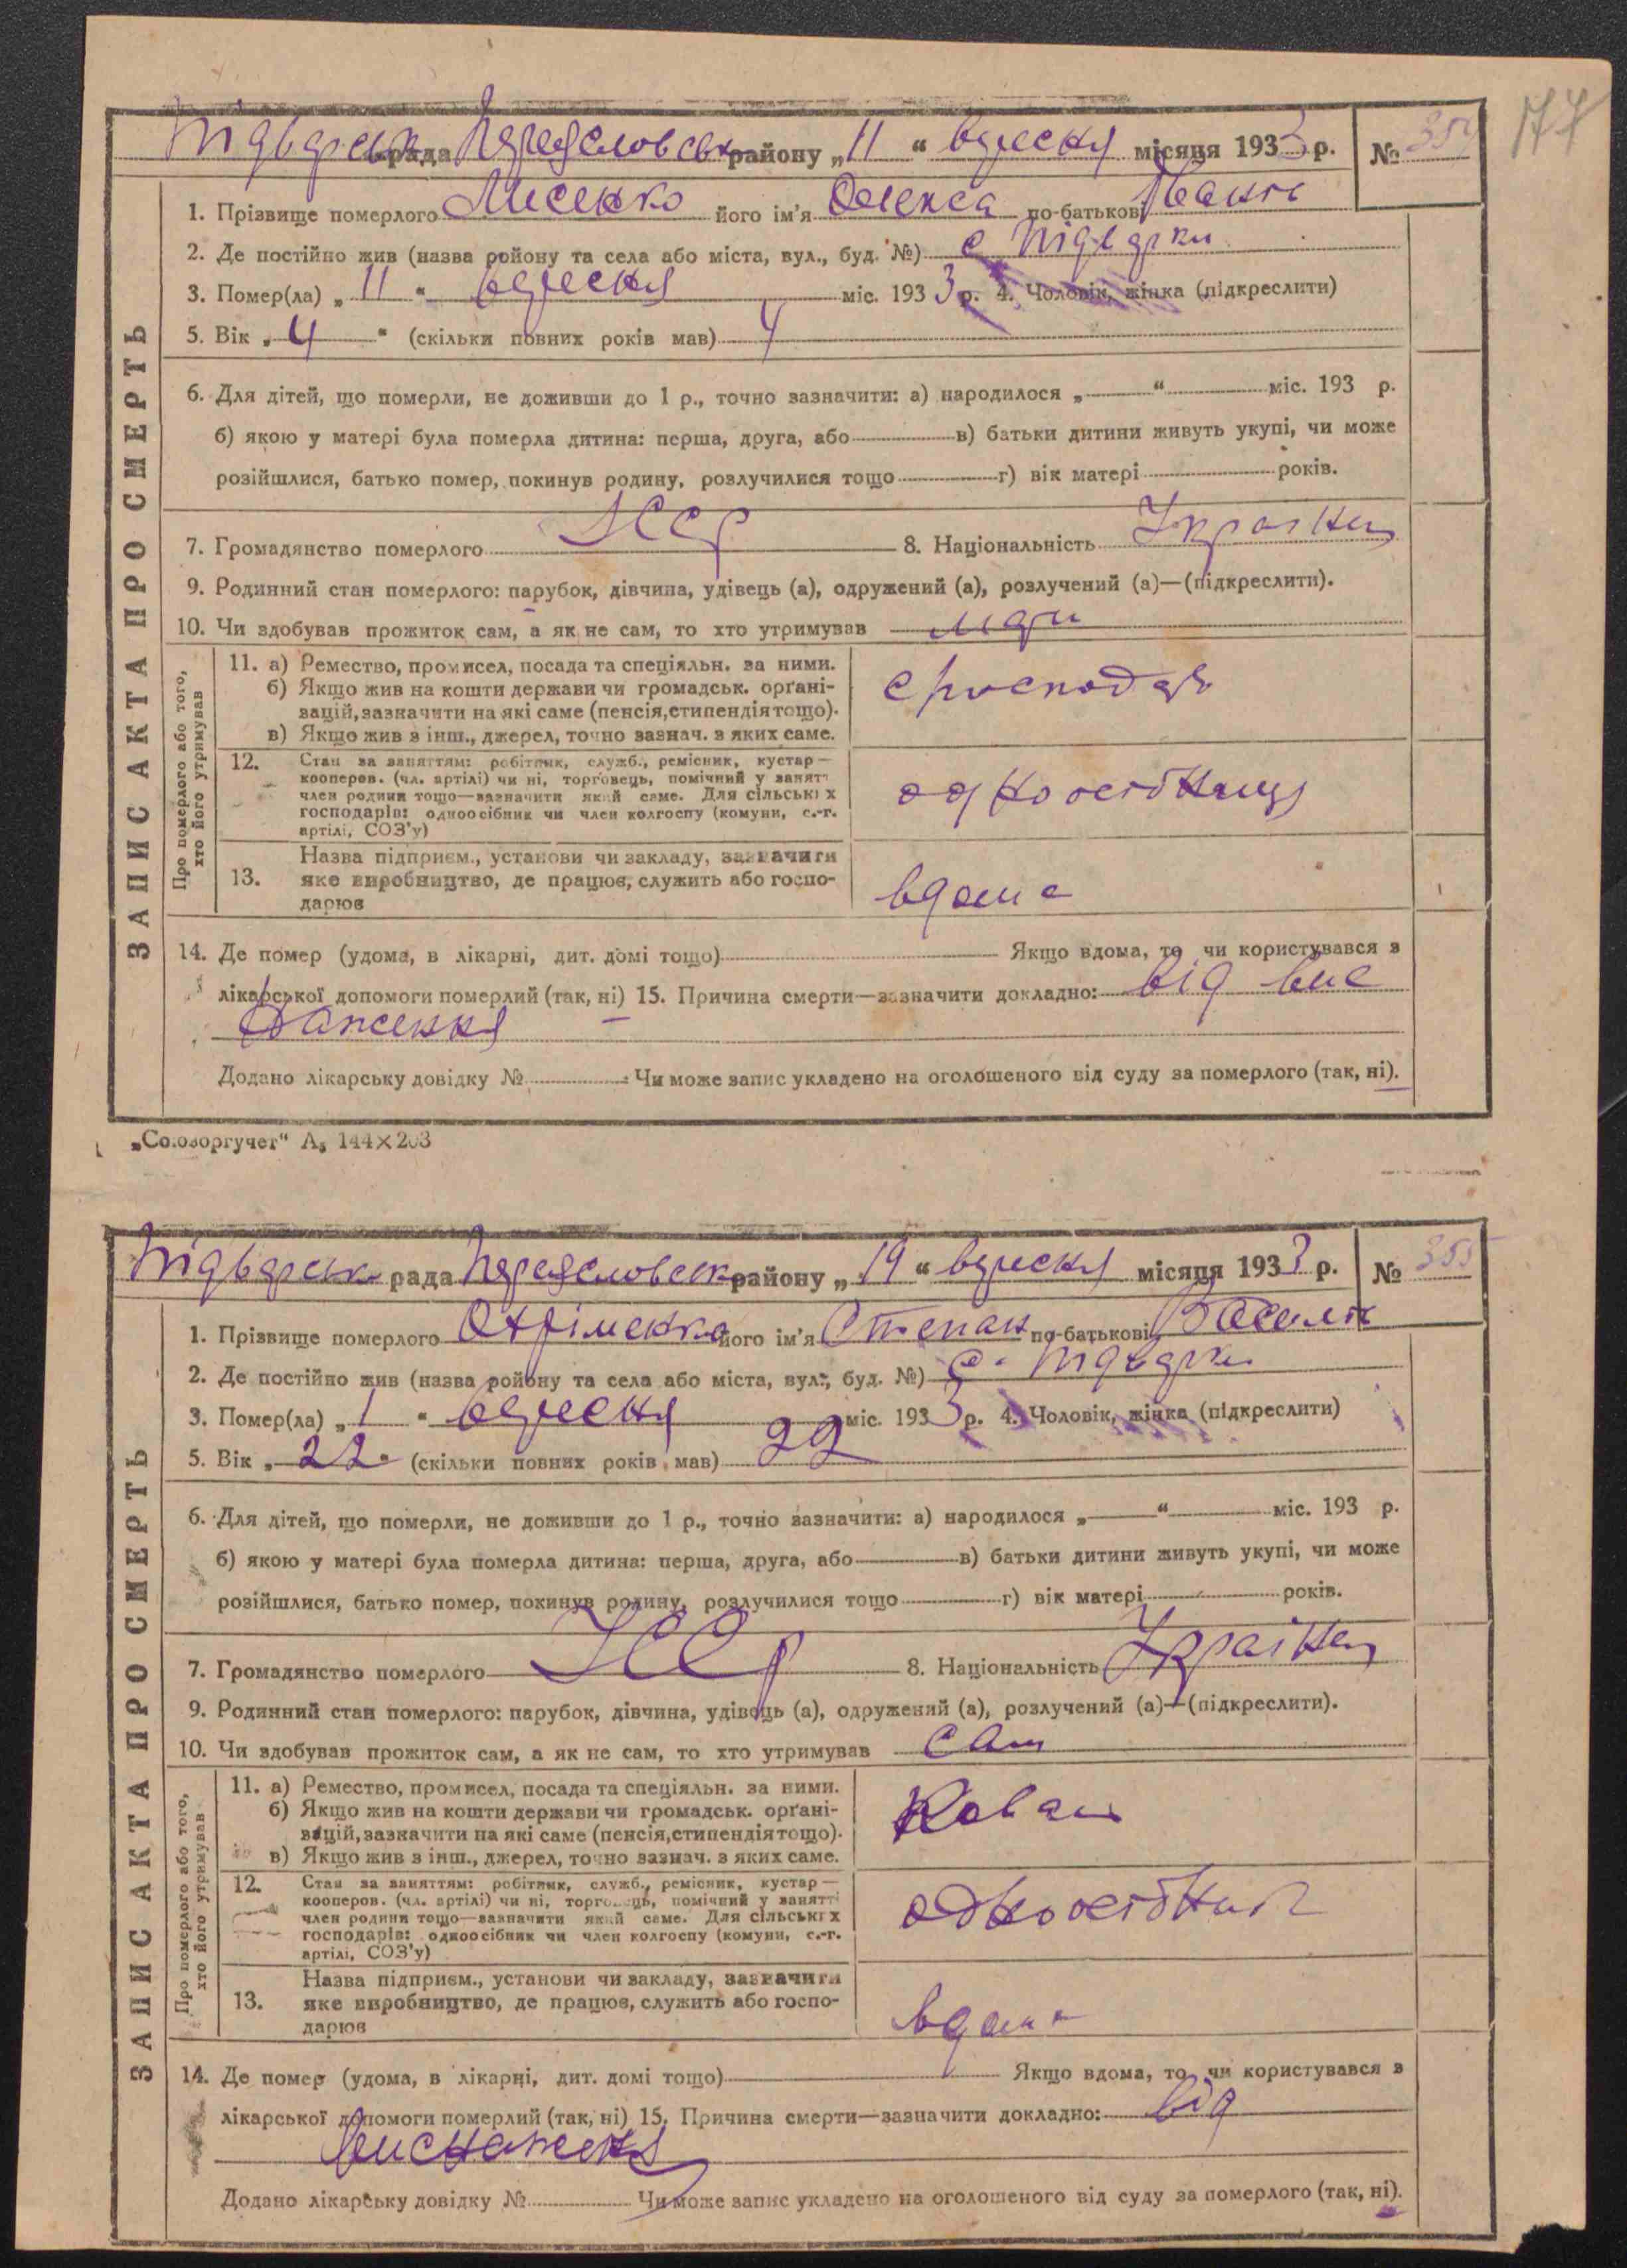 177
Підварськ рада Переяславськ району „11“ вересня місяця 1933 р. № 354
1. Прізвище померлого Лисенко його ім'я Олекса по-батькові Іванів
2. Де постійно жив (назва ройону та села або міста, вул., буд. №) с Підварки
3. Помер(ла) „11“ вересня міс. 1933 р. 4. Чоловік, жінка (підкреслити)
5. Вік „4“ (скільки повних років мав) 4
6. Для дітей, що померли, не доживши до 1 р., точно зазначити: а) народилося „ “ міс. 193 р.
б) якою у матері була померла дитина: перша, друга, або в) батьки дитини живуть укупі, чи може
розійшлися, батько помер, покинув родину, розлучилися тощо г) вік матері років.
7. Громадянство померлого УССР 8. Національність Українец
9. Родинний стан померлого: парубок, дівчина, удівець (а), одружений (а), розлучений (а)—(підкреслити).
10. Чи здобував прожиток сам, а як не сам, то хто утримував мати
ЗАПИС АКТА ПРО СМЕРТЬ
Про померлого або того, хто його утримував
11. а) Ремество, промисел, посада та спеціяльн. за ними.
б) Якщо жив на кошти держави чи громадськ. орґані-
зацій, зазначити на які саме (пенсія, стипендія тощо).
в) Якщо жив з інш., джерел, точно зазнач. з яких саме.
12. Стан за заняттям: робітник, служб., ремісник, кустар—
кооперов. (чл. артілі) чи ні, торговець, помічний у занятт
член родини тощо—зазначити який саме. Для сільськіх
господарів: одноосібник чи член колгоспу (комуни, с.-г.
артілі, СОЗ'у)
одноосібниця
Назва підприєм., установи чи закладу, зазначити
13. яке виробництво, де працює, служить або госпо-
дарює
вдома
14. Де помер (удома, в лікарні, дит. домі тощо) Якщо вдома, то чи користувався з
лікарської допомоги померлий (так, ні) 15. Причина смерти—зазначити докладно: від вис
наження
Додано лікарську довідку № Чи може запис укладено на оголошеного від суду за померлого (так, ні).
„Союзоргучет“ А₅ 144×203
Підварськ рада Переяславськ району „19“ вересня місяця 1933 р. № 355
1. Прізвище померлого Охріменко його ім'я Степан по-батькові Василів
2. Де постійно жив (назва ройону та села або міста, вул., буд. №) с. Підварки
3. Помер(ла) „1“ вересня міс. 1933 р. 4. Чоловік, жінка (підкреслити)
5. Вік „22“ (скільки повних років мав) 22
6. Для дітей, що померли, не доживши до 1 р., точно зазначити: а) народилося „ “ міс. 193 р.
б) якою у матері була померла дитина: перша, друга, або в) батьки дитини живуть укупі, чи може
розійшлися, батько помер, покинув родину, розлучилися тощо г) вік матері років.
7. Громадянство померлого УССР 8. Національність Українец
9. Родинний стан померлого: парубок, дівчина, удівець (а), одружений (а), розлучений (а)—(підкреслити).
10. Чи здобував прожиток сам, а як не сам, то хто утримував сам
ЗАПИС АКТА ПРО СМЕРТЬ
Про померлого або того, хто його утримував
11. а) Ремество, промисел, посада та спеціяльн. за ними.
б) Якщо жив на кошти держави чи громадськ. орґані-
зацій, зазначити на які саме (пенсія, стипендія тощо).
в) Якщо жив з інш., джерел, точно зазнач. з яких саме.
Коваль
12. Стан за заняттям: робітник, служб., ремісник, кустар—
кооперов. (чл. артілі) чи ні, торговець, помічний у занятті
член родини тощо—зазначити який саме. Для сільськіх
господарів: одноосібник чи член колгоспу (комуни, с.-г.
артілі, СОЗ'у)
одноосібник
Назва підприєм., установи чи закладу, зазначити
13. яке виробництво, де працює, служить або госпо-
дарює
вдома
14. Де помер (удома, в лікарні, дит. домі тощо) Якщо вдома, то чи користувався з
лікарської допомоги померлий (так, ні) 15. Причина смерти—зазначити докладно: від
виснаження
Додано лікарську довідку № Чи може запис укладено на оголошеного від суду за померлого (так, ні).